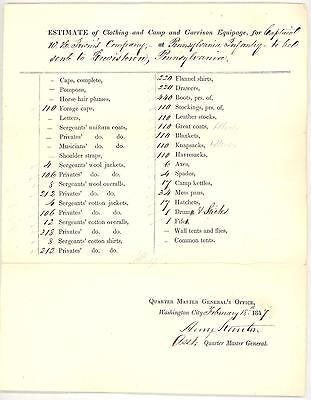 ESTIMATE of Clothing and Camp and Garrison Equipage, for Captain
W. H. Irwin's Company, of Pennsylvania Infantry - to be
sent to Lewistown, Pennsylvania.
– Caps, complete,
– Pompons,
– Horse hair plumes,
110 Forage caps,
– Letters,
– Sergeants' uniform coats,
– Privates' do. do.
– Musicians' do. do.
– Shoulder straps,
4 Sergeants' wool jackets,
106 Privates' do. do.
8 Sergeants' wool overalls,
212 Privates' do. do.
4 Sergeants' cotton jackets,
106 Privates' do. do.
12 Sergeants' cotton overalls,
318 Privates' do. do.
8 Sergeants' cotton shirts,
212 Privates' do. do.
220 Flannel shirts,
220 Drawers,
440 Boots, prs. of,
110 Stockings, prs. of,
110 Leather stocks,
110 Great coats,
110 Blankets,
110 Knapsacks,
110 Haversacks,
6 Axes,
4 Spades,
17 Camp kettles,
34 Mess pans,
17 Hatchets,
1 Drum & Sticks
1 Fife,
– Wall tents and flies,
– Common tents.
QUARTER MASTER GENERAL'S OFFICE,
Washington City, February 18th 1847
Henry Stanton
Asst. Quarter Master General.